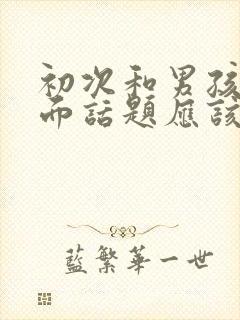 初次和男孩
而話題應該
藍繁華一世